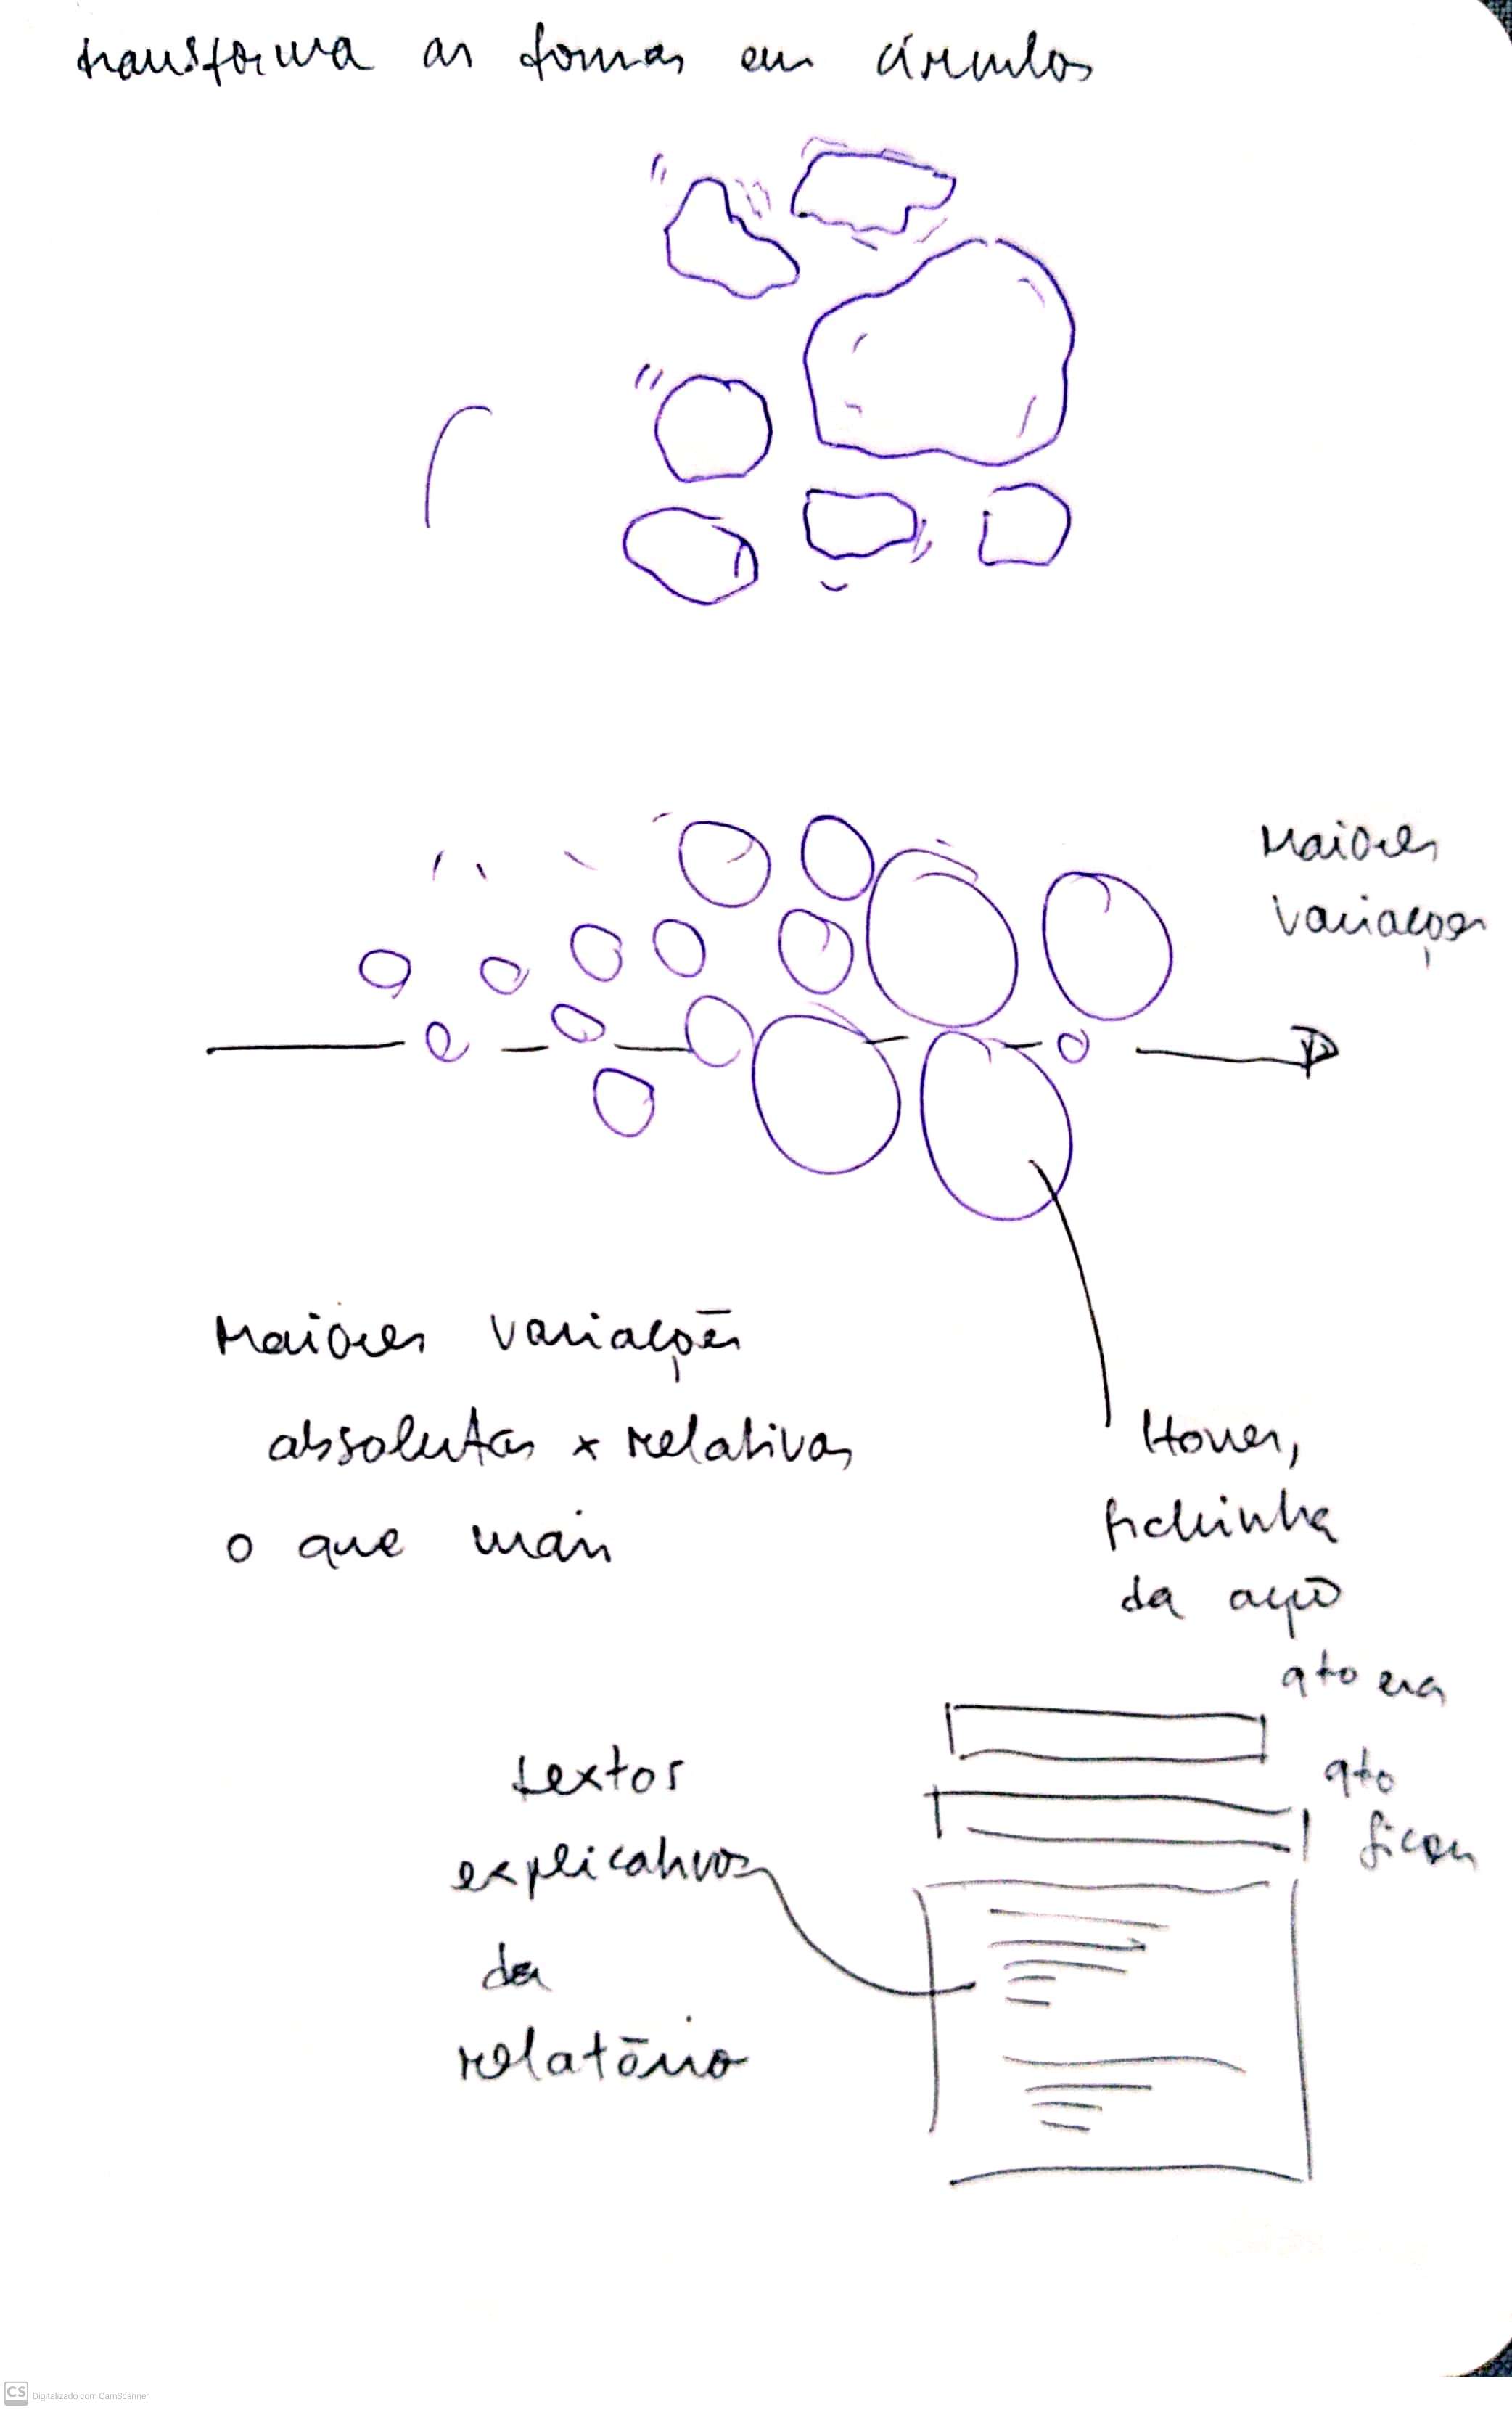 transforma as formas em círculos
Maiores
variações
Maiores variações
absolutas x relativas
o que mais
Hover,
fichinha
da ação
qto era
qto
ficou
textos
explicativos
do
relatório
CS Digitalizado com CamScanner